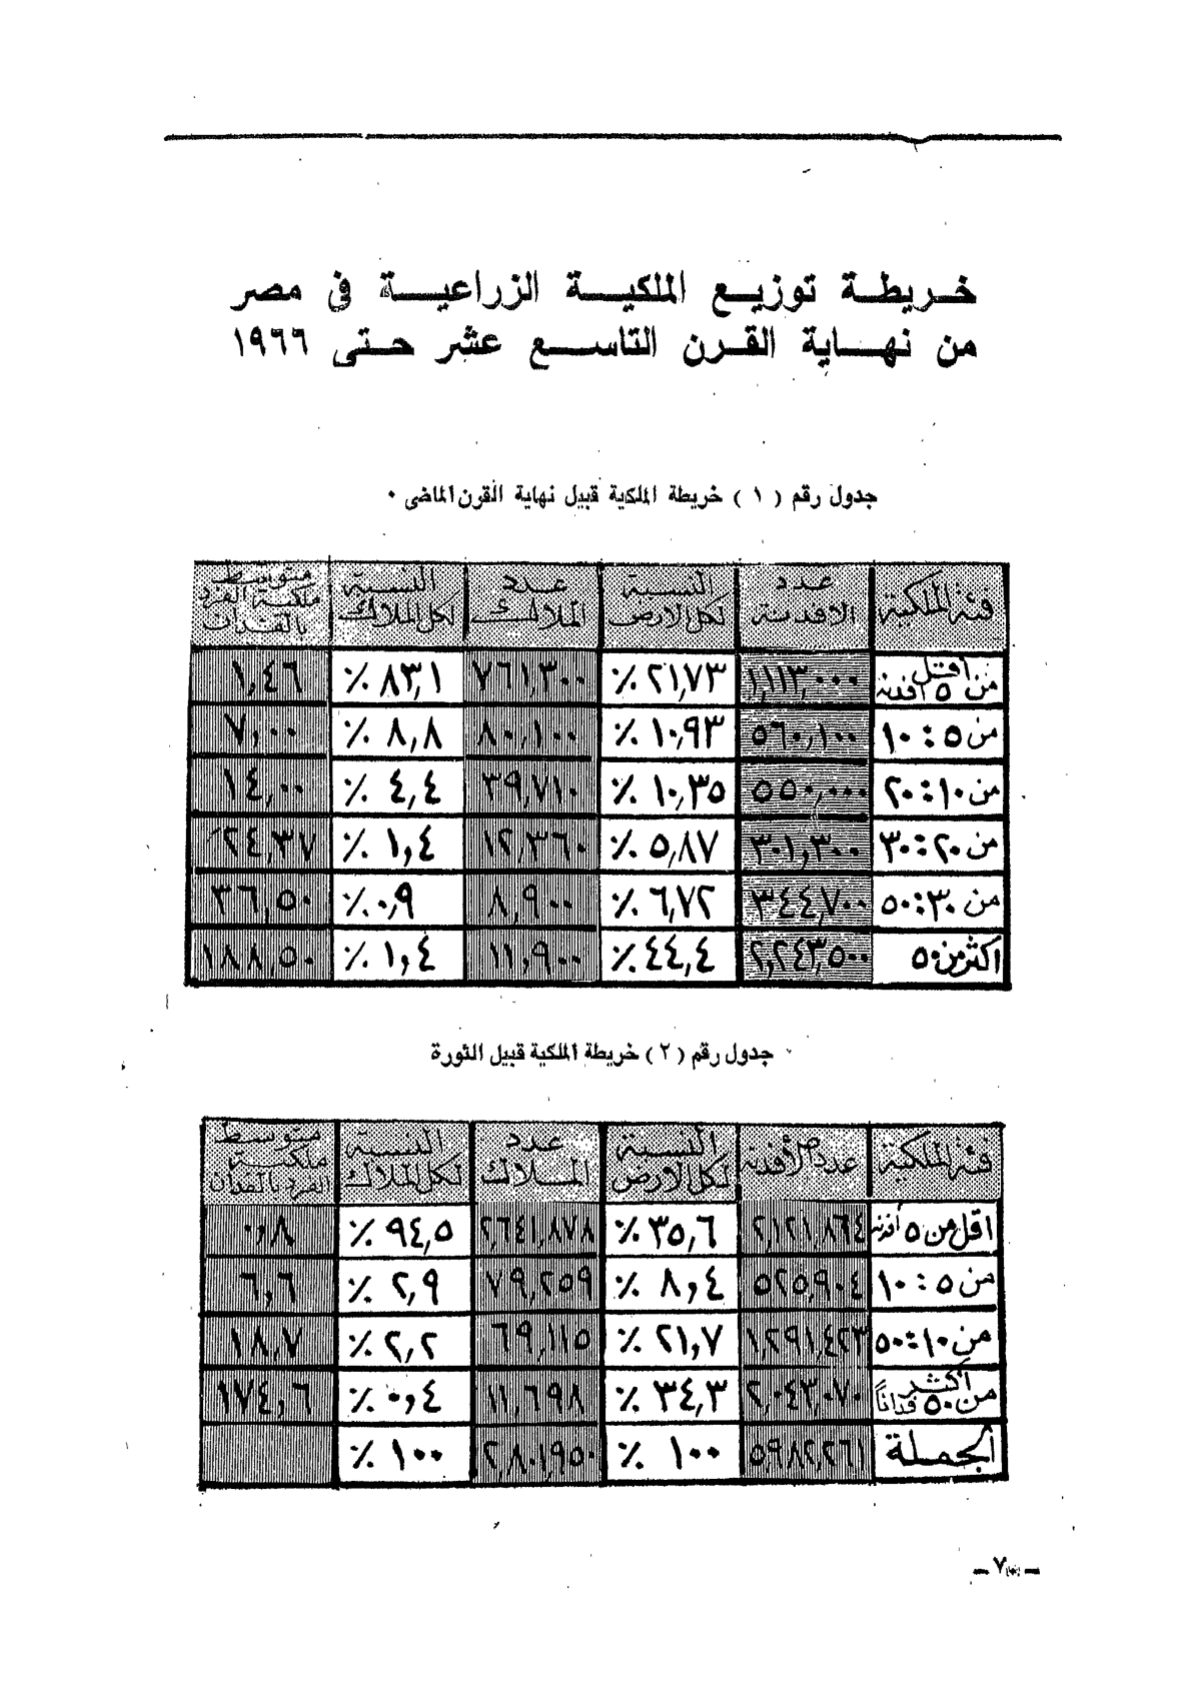 خريطة توزيع الملكية الزراعية فى مصر
من نهاية القرن التاسع عشر حتى ١٩٦٦
جدول رقم ( ١ ) خريطة الملكية قبيل نهاية القرن الماضى ٠
فئة الملكية | عدد الافدنة | النسبة لكل الارض | عدد الملاك | النسبة لكل الملاك | متوسط ملكية الفرد بالفدان
أقل من ٥ أفدنة | ١,١١٣,٠٠٠ | ٢١,٧٣ ٪ | ٧٦١,٣٠٠ | ٨٣,١ ٪ | ١,٤٦
من ٥ : ١٠ | ٥٦٠,١٠٠ | ١٠,٩٣ ٪ | ٨٠,١٠٠ | ٨,٨ ٪ | ٧,٠٠
من ١٠ : ٢٠ | ٥٥٠,٠٠٠ | ١٠,٣٥ ٪ | ٣٩,٧١٠ | ٤,٤ ٪ | ١٤,٠٠
من ٢٠ : ٣٠ | ٣٠١,٣٠٠ | ٥,٨٧ ٪ | ١٢,٣٦٠ | ١,٤ ٪ | ٢٤,٣٧
من ٣٠ : ٥٠ | ٣٤٤,٧٠٠ | ٦,٧٢ ٪ | ٨,٩٠٠ | ٠,٩ ٪ | ٣٦,٥٠
اكثر من ٥٠ | ٢,٢٤٣,٥٠٠ | ٤٤,٤ ٪ | ١١,٩٠٠ | ١,٤ ٪ | ١٨٨,٥٠
جدول رقم ( ٢ ) خريطة الملكية قبيل الثورة
فئة الملكية | عدد الأفدنة | النسبة لكل الارض | عدد الملاك | النسبة لكل الملاك | متوسط ملكية الفرد بالفدان
اقل من ٥ أفدنة | ٢,١٢١,٨٦٤ | ٣٥,٦ ٪ | ٢,٦٤١,٨٧٨ | ٩٤,٥ ٪ | ٠,٨
من ٥ : ١٠ | ٥٢٥,٩٠٤ | ٨,٤ ٪ | ٧٩,٢٥٩ | ٢,٩ ٪ | ٦,٦
من ١٠ : ٥٠ | ١,٢٩١,٤٢٣ | ٢١,٧ ٪ | ٦٩,١١٥ | ٢,٢ ٪ | ١٨,٧
أكثر من ٥٠ فداناً | ٢,٠٤٣,٠٧٠ | ٣٤,٣ ٪ | ١١,٦٩٨ | ٠,٤ ٪ | ١٧٤,٦
الجملة | ٥,٩٨٢,٢٦١ | ١٠٠ ٪ | ٢,٨٠١,٩٥٠ | ١٠٠ ٪